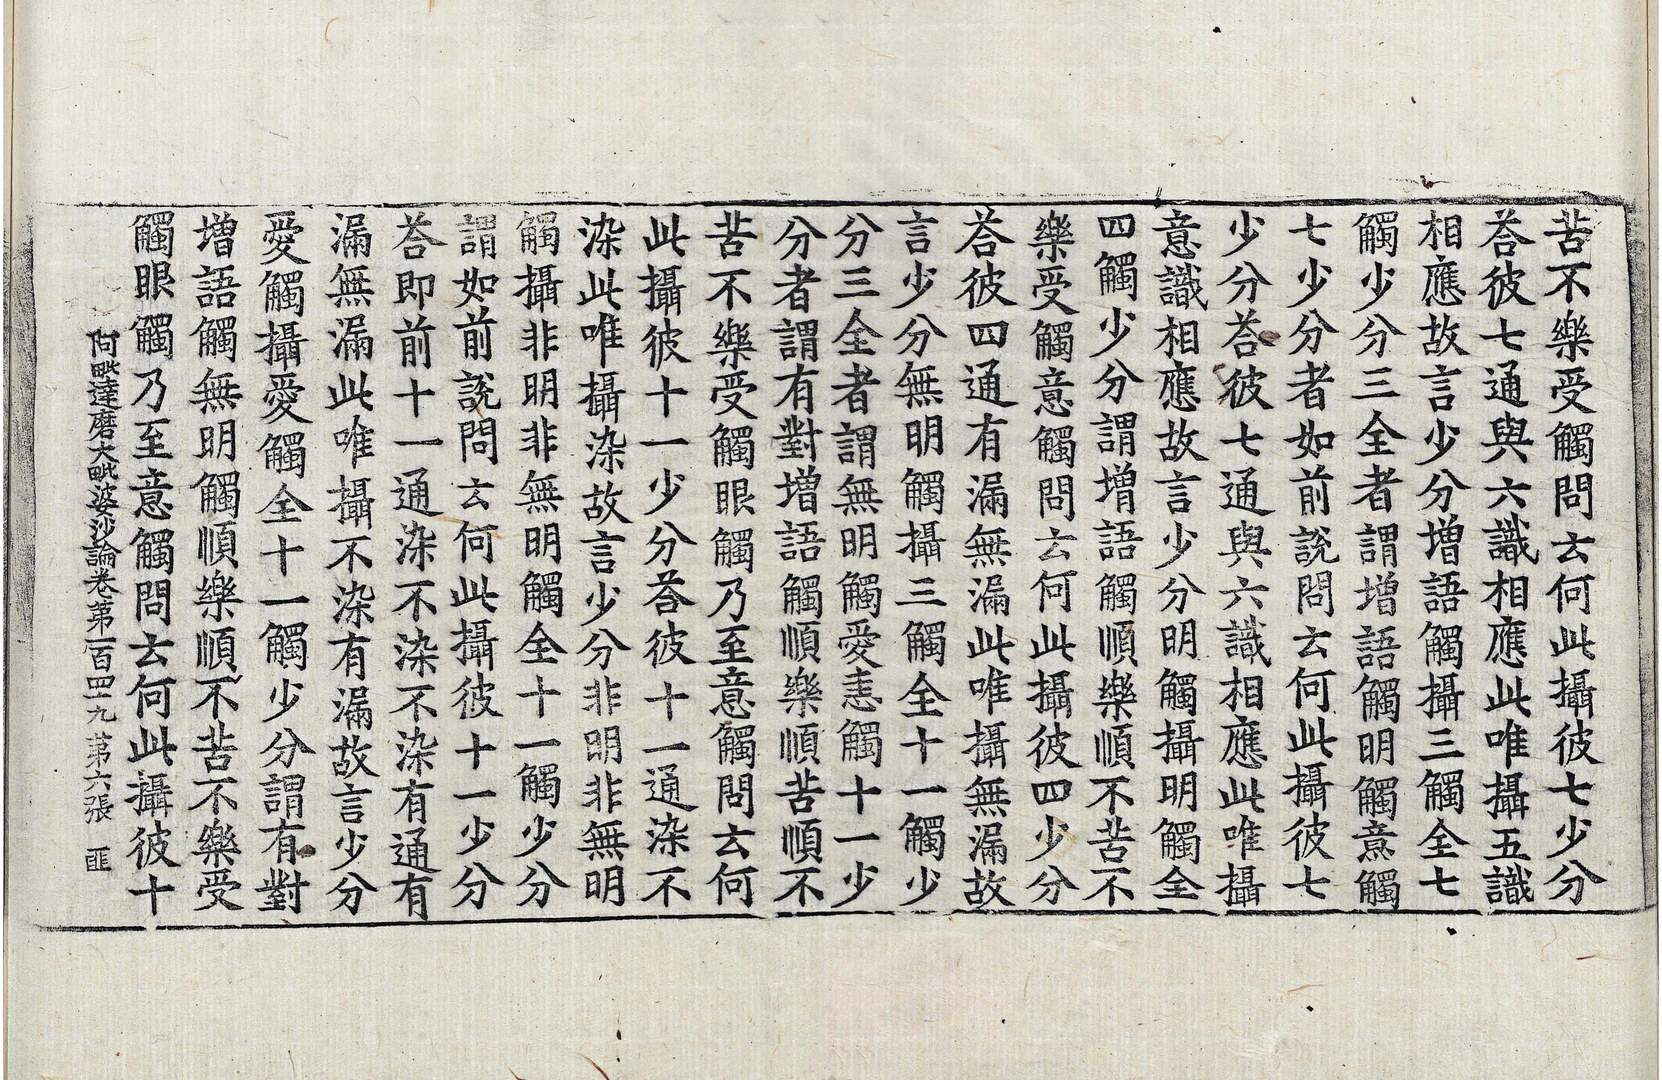 苦不樂受觸問云何此攝彼七少分
荅彼七通與六識相應此唯攝五識
相應故言少分增語觸攝三觸全七
觸少分三全者謂增語觸明觸意觸
七少分者如前說問云何此攝彼七
少分荅彼七通與六識相應此唯攝
意識相應故言少分明觸攝明觸全
四觸少分謂增語觸順樂順不苦不
樂受觸意觸問云何此攝彼四少分
荅彼四通有漏無漏此唯攝無漏故
言少分無明觸攝三觸全十一觸少
分三全者謂無明觸愛恚觸十一少
分者謂有對增語觸順樂順苦順不
苦不樂受觸眼觸乃至意觸問云何
此攝彼十一少分荅彼十一通染不
染此唯攝染故言少分非明非無明
觸攝非明非無明觸全十一觸少分
謂如前說問云何此攝彼十一少分
荅即前十一通染不染不染有通有
漏無漏此唯攝不染有漏故言少分
愛觸攝愛觸全十一觸少分謂有對
增語觸無明觸順樂順不苦不樂受
觸眼觸乃至意觸問云何此攝彼十
阿毗達磨大毗婆沙論卷第一百四十九 第六張 匪